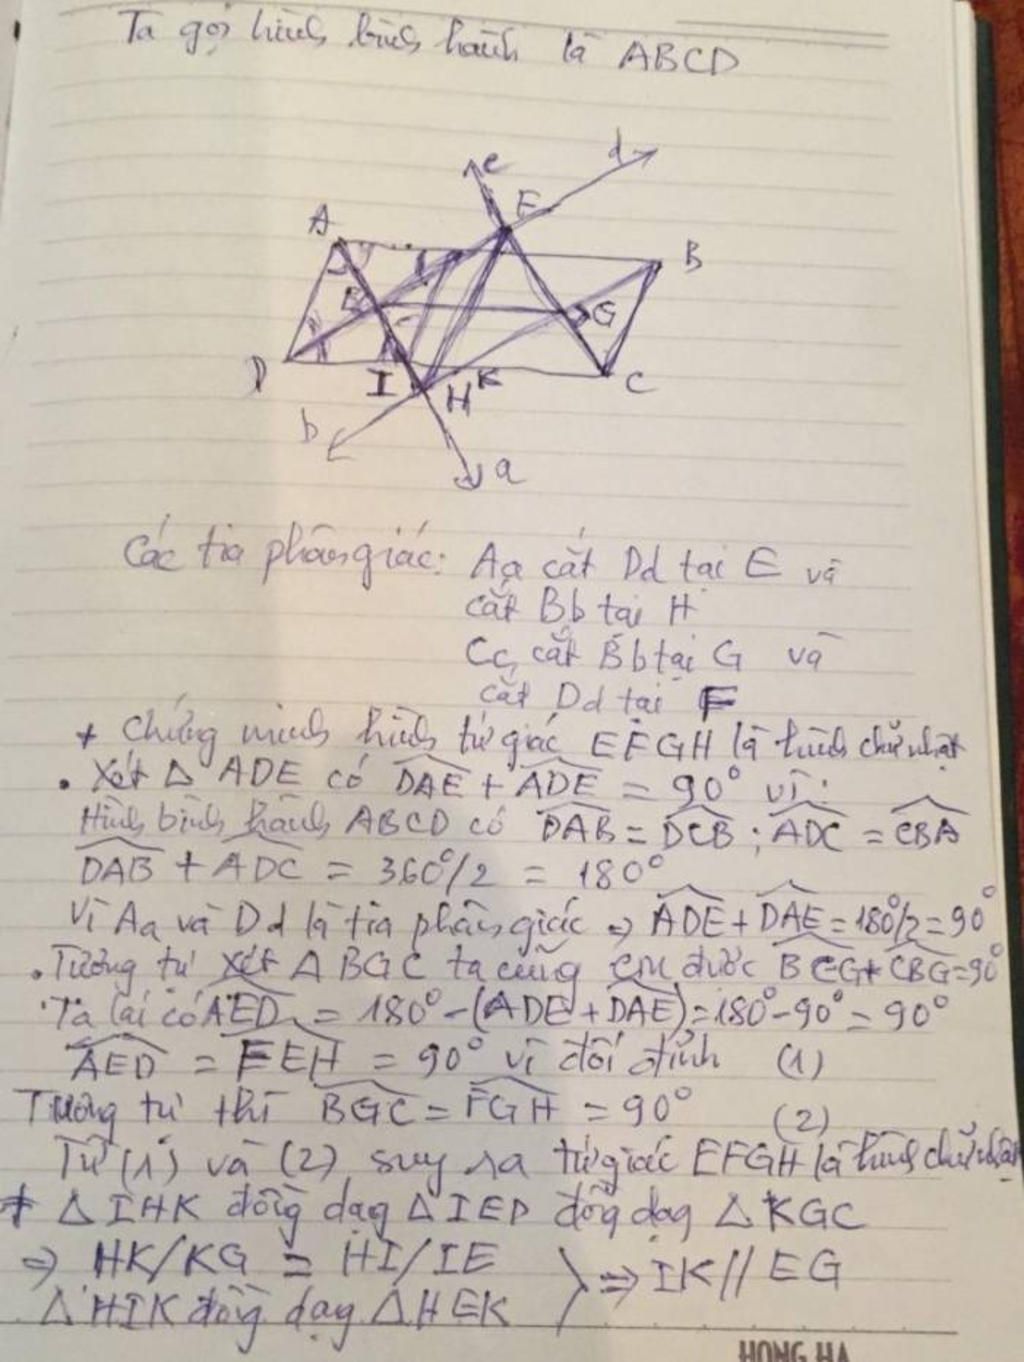 Ta gọi hình bình hành là ABCD
c
d
E
A
B
E
G
D
I
H
K
C
b
a
Các tia phân giác: Aa cắt Dd tại E và
cắt Bb tại H
Cc cắt Bb tại G và
cắt Dd tại F
+ Chứng minh hình tứ giác EFGH là hình chữ nhật
. Xét Δ ADE có DAE + ADE = 90° vì:
Hình bình hành ABCD có DAB = DCB ; ADC = CBA
DAB + ADC = 360°/2 = 180°
Vì Aa và Dd là tia phân giác => ADE + DAE = 180°/2 = 90°
. Tương tự xét Δ BGC ta cũng cm được BCG + CBG = 90°
. Ta lại có AED = 180° - (ADE + DAE) = 180° - 90° = 90°
AED = FEH = 90° vì đối đỉnh (1)
Tương tự thì BGC = FGH = 90° (2)
Từ (1) và (2) suy ra tứ giác EFGH là hình chữ nhật
+ Δ IHK đồng dạg Δ IED đồg dạg Δ KGC
=> HK/KG = HI/IE
=> IK // EG
Δ HIK đồng dạg Δ HEK
HONG HA